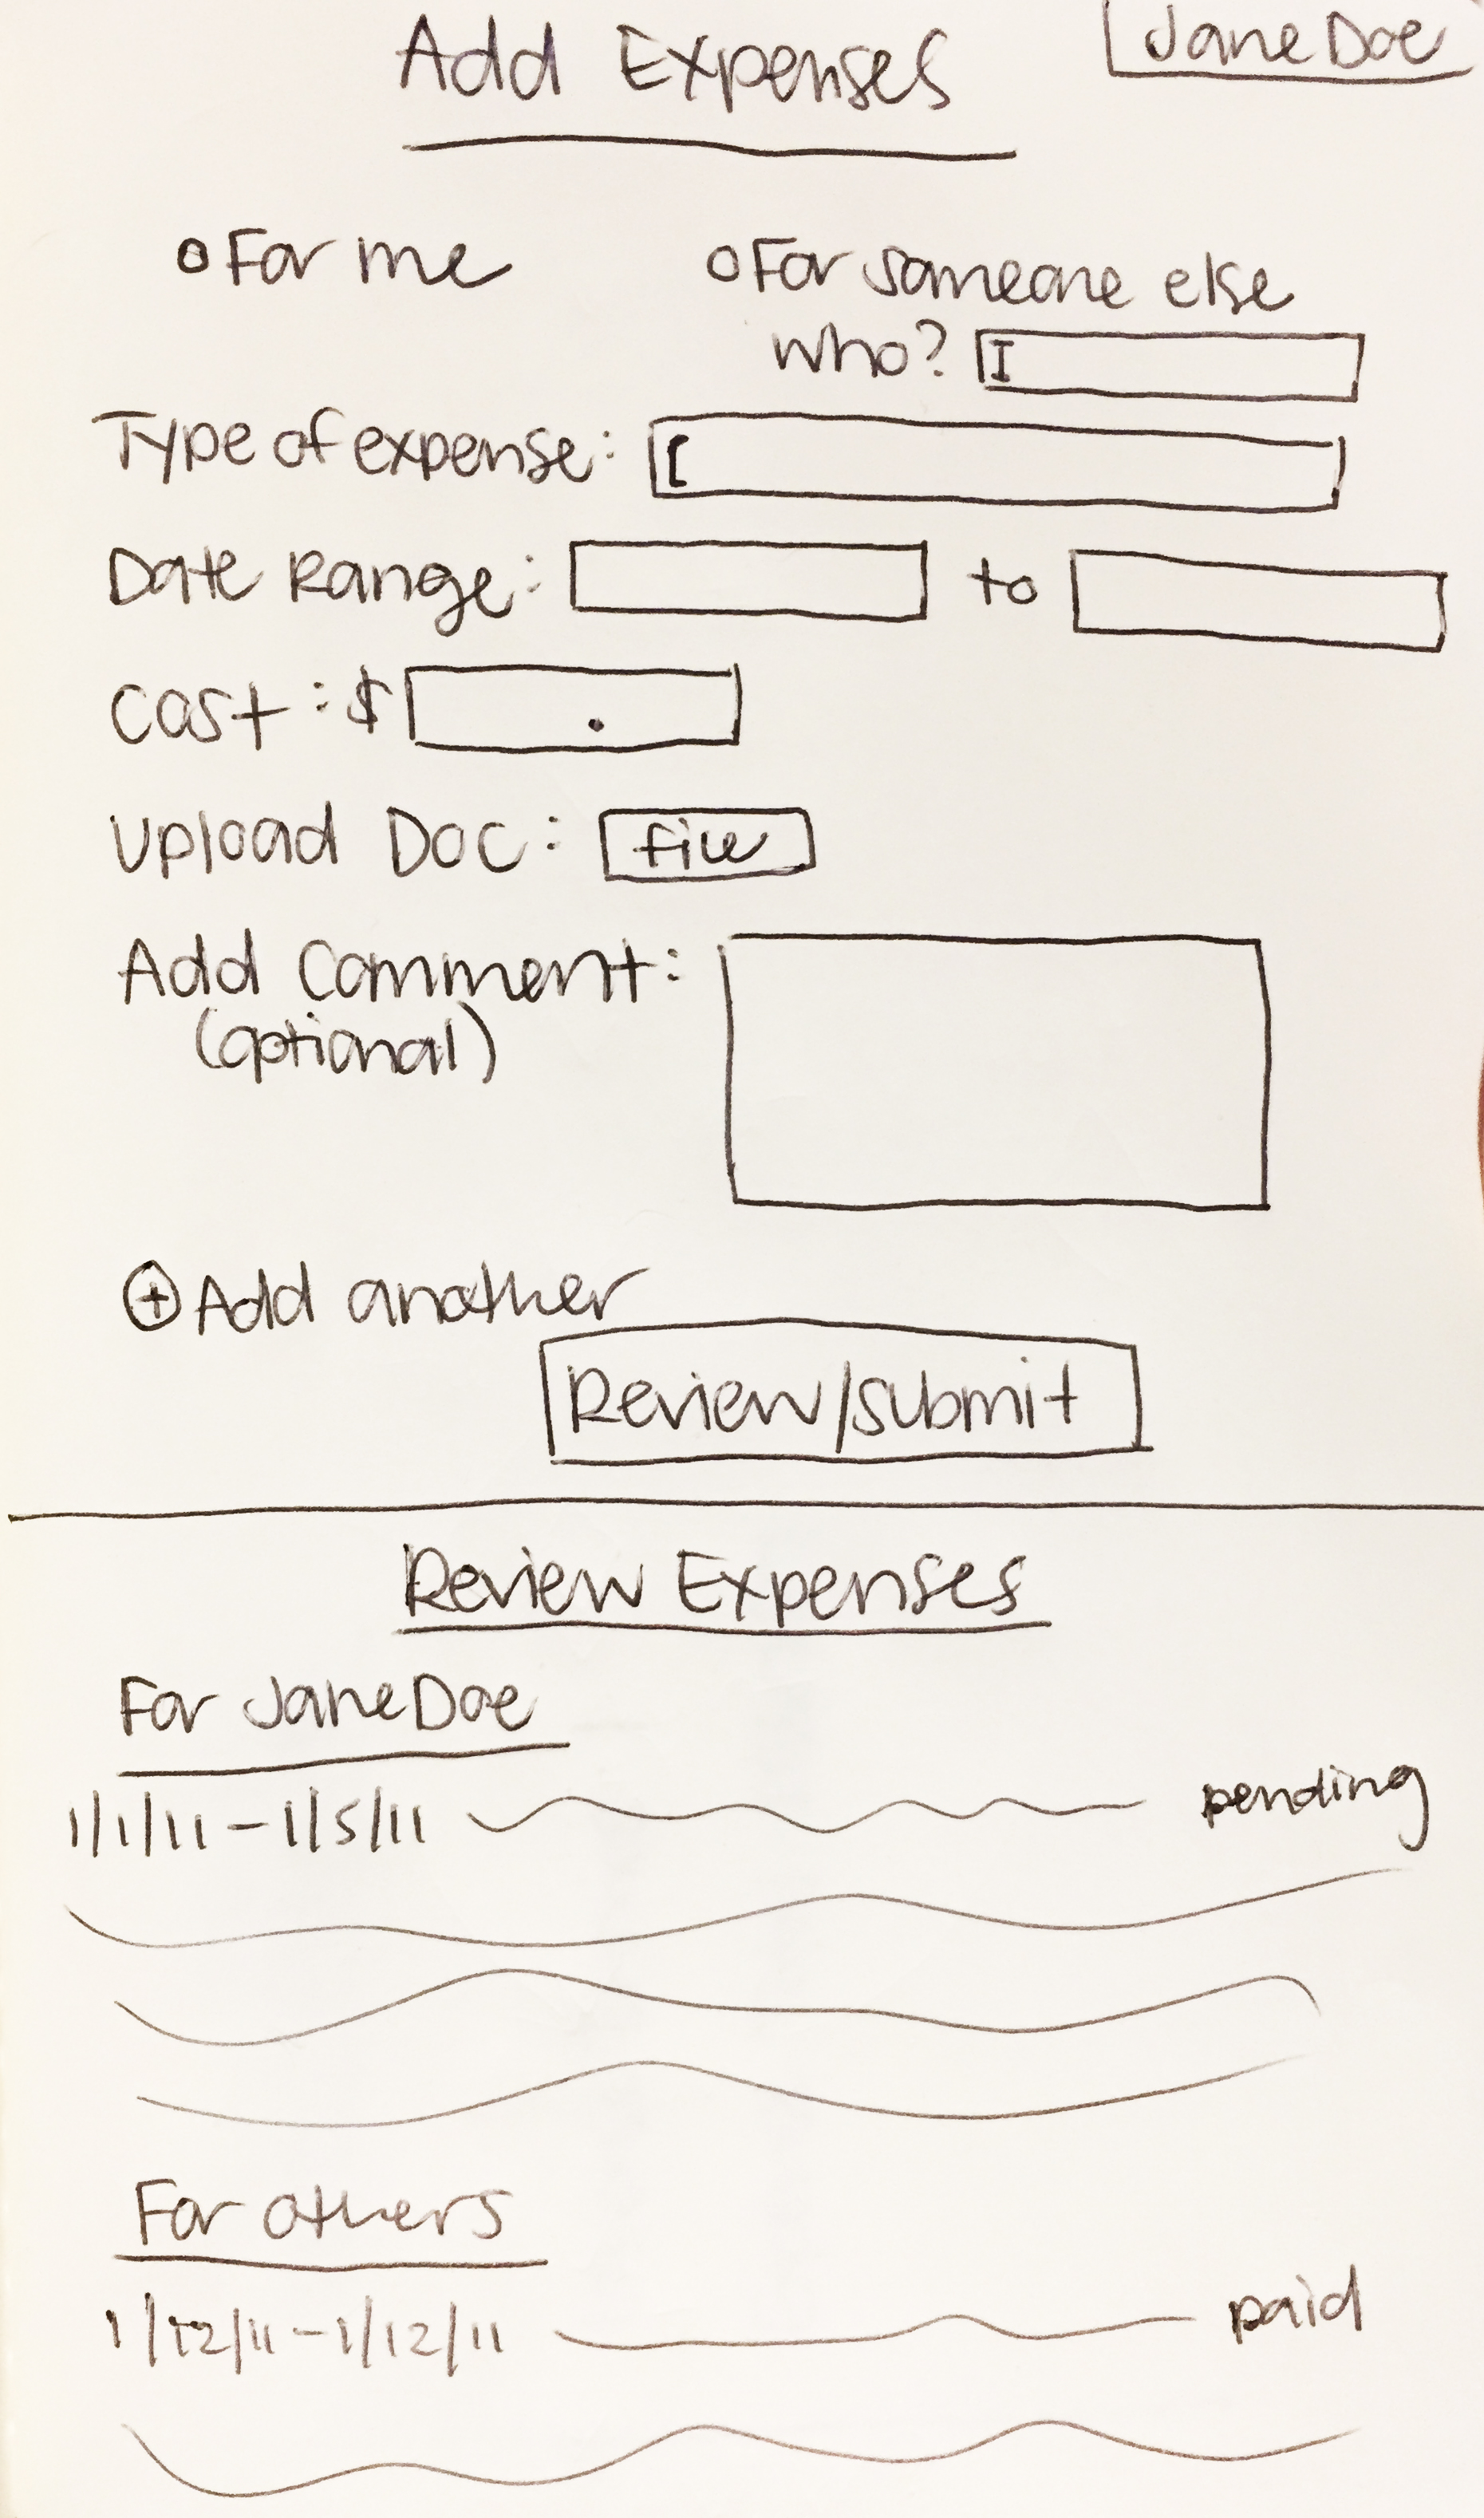 Add Expenses
Jane Doe
For me
For someone else
who?
Type of expense:
Date Range: to
Cost: $ .
Upload Doc: file
Add Comment:
(optional)
+ Add another
Review/submit
Review Expenses
For Jane Doe
1/1/11 - 1/5/11 pending
For others
1/12/11 - 1/12/11 paid